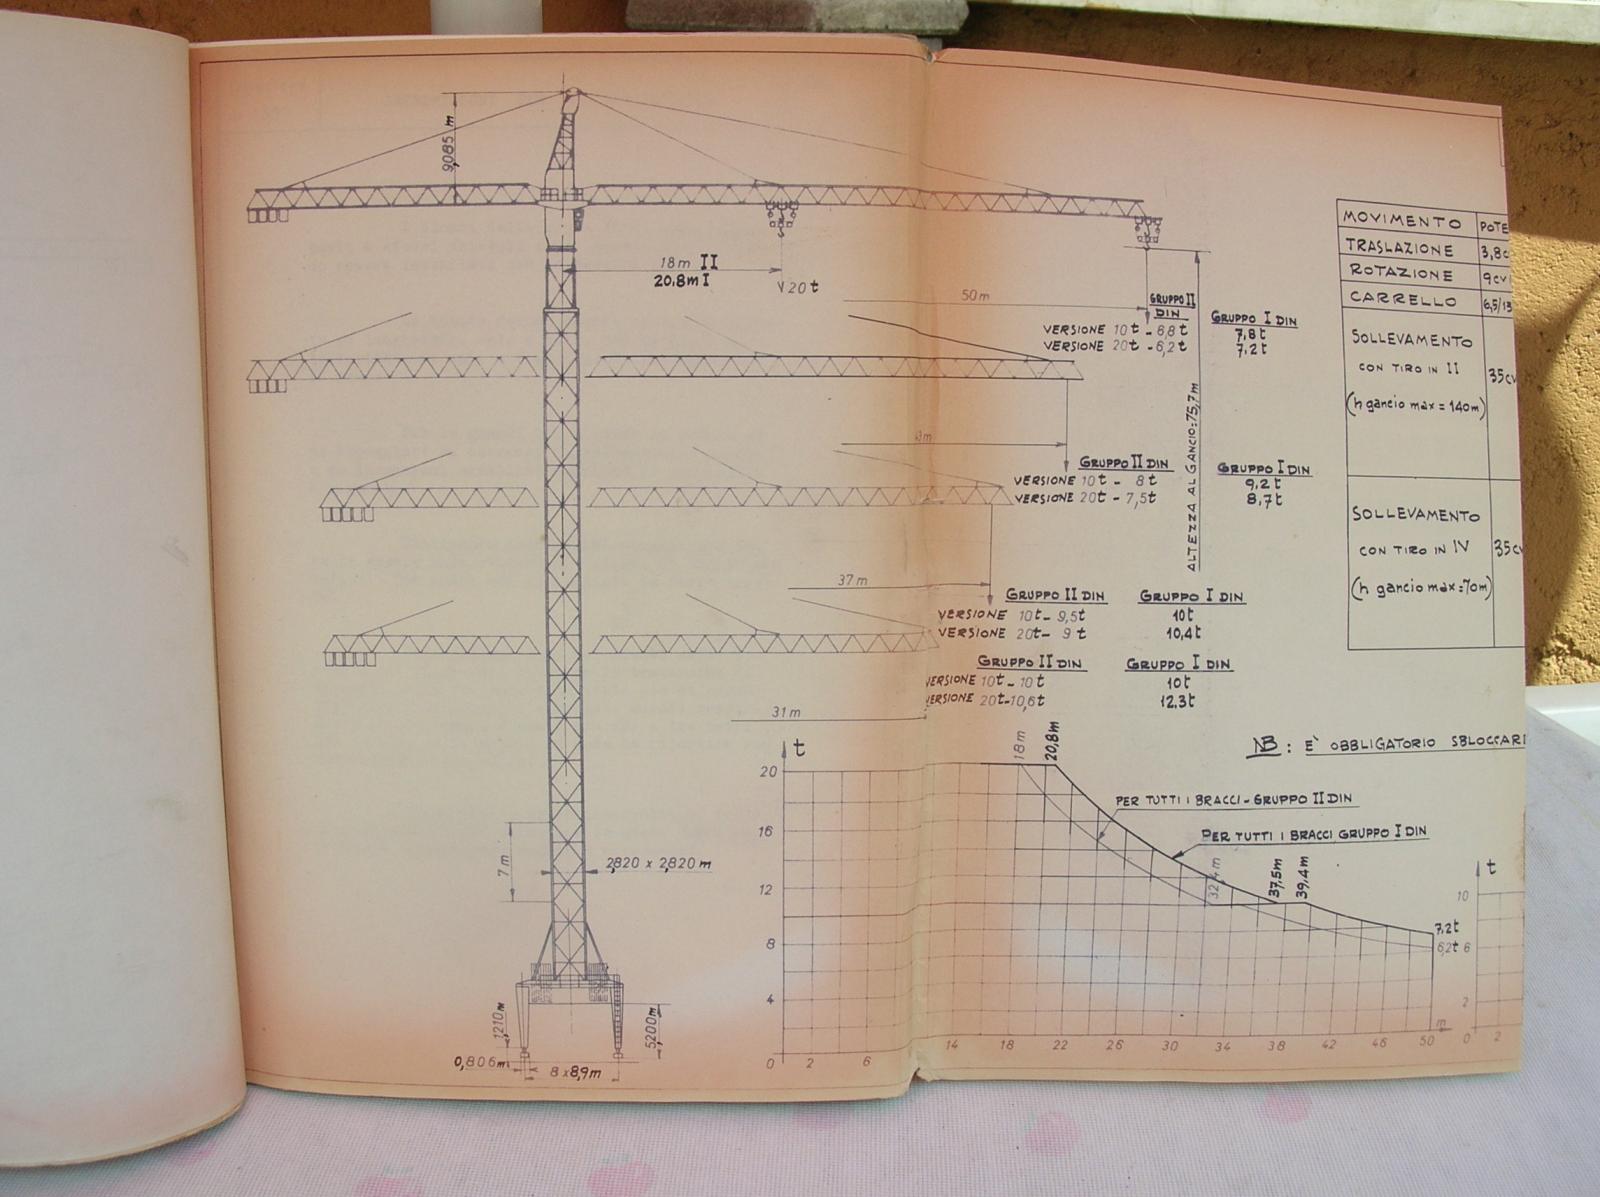 9,085 m
18m II
20,8m I
20t
50m
GRUPPO II DIN
VERSIONE 10t - 6,8t
VERSIONE 20t - 6,2t
GRUPPO I DIN
7,8t
7,2t
ALTEZZA AL GANCIO=75,7m
GRUPPO II DIN
VERSIONE 10t - 8t
VERSIONE 20t - 7,5t
GRUPPO I DIN
9,2t
8,7t
37m
GRUPPO II DIN
VERSIONE 10t - 9,5t
VERSIONE 20t - 9t
GRUPPO I DIN
10t
10,4t
GRUPPO II DIN
VERSIONE 10t - 10t
VERSIONE 20t - 10,6t
GRUPPO I DIN
10t
12,3t
31m
MOVIMENTO
TRASLAZIONE 3,8
ROTAZIONE 9cv
CARRELLO 6,5/13
SOLLEVAMENTO
CON TIRO IN II
(h gancio max = 140m)
35cv
SOLLEVAMENTO
CON TIRO IN IV
(h gancio max=70m)
35cv
NB: E' OBBLIGATORIO
7m
2,820 x 2,820 m
1,210m
5,200m
0,806m
8 x 8,9m
t
20
16
12
8
4
0 2 6 14 18 22 26 30 34 38 42 46 50
m
18m
20,8m
PER TUTTI I BRACCI - GRUPPO II DIN
PER TUTTI I BRACCI GRUPPO I DIN
32,4m
37,5m
39,4m
7,2t
6,2t
t
10
6
2
0 2